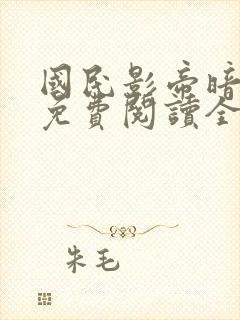 國民影帝暗
免費閱讀全
朱毛